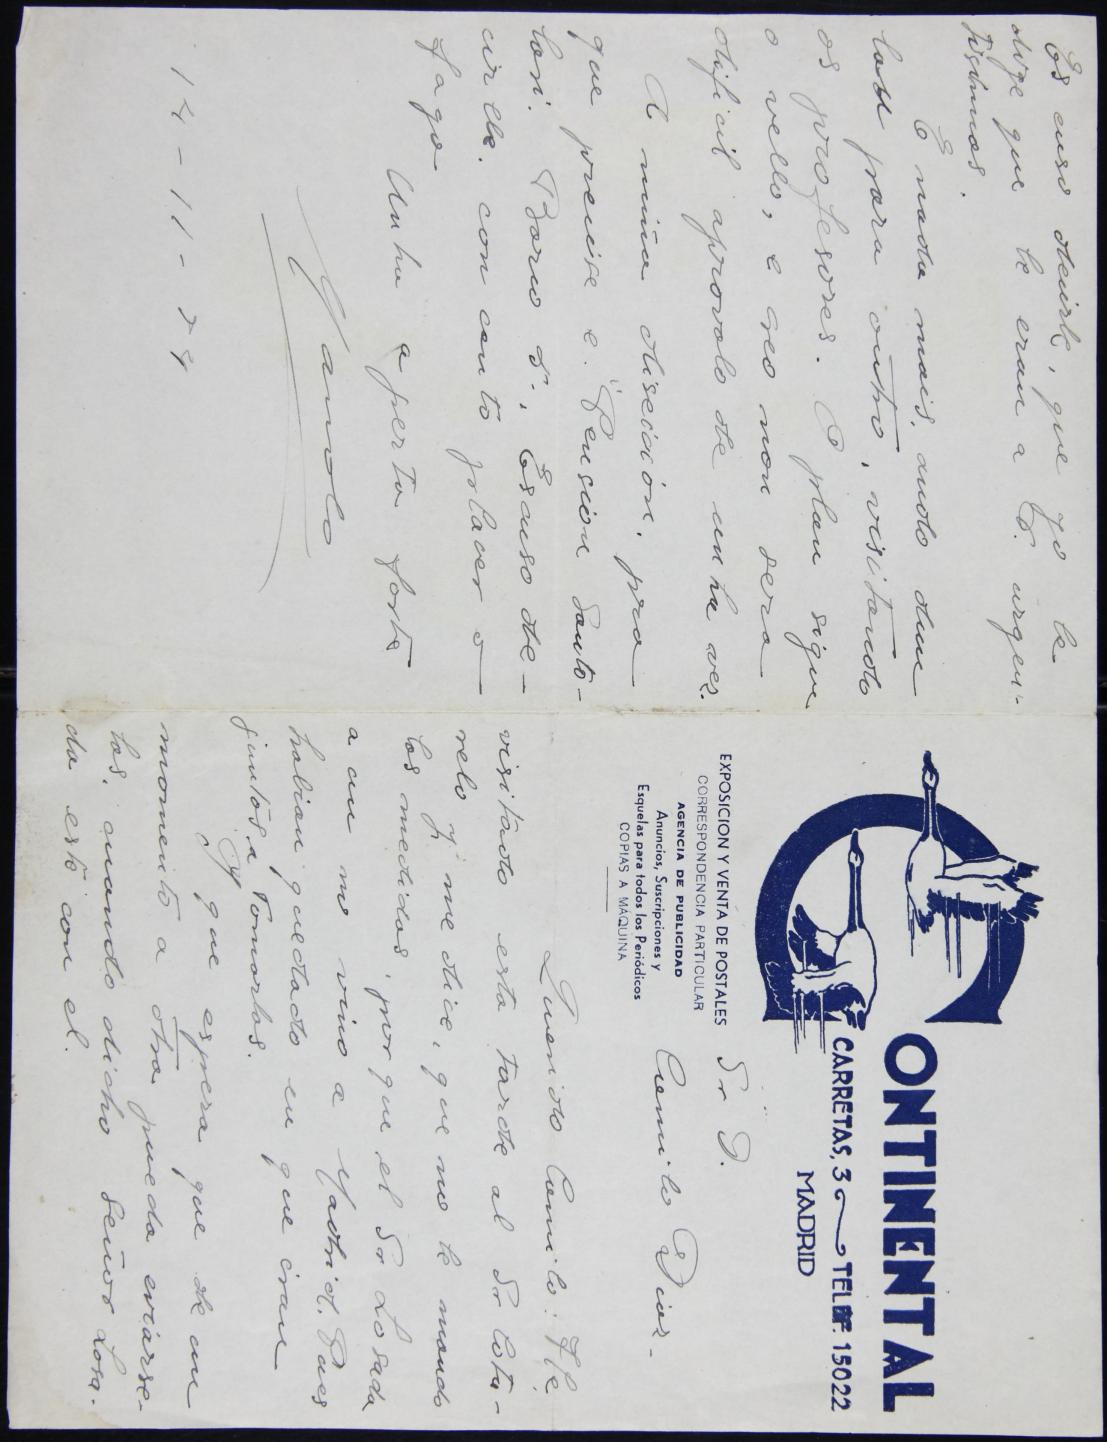 CONTINENTAL
CARRETAS, 3 TELÉF. 15022
MADRID
EXPOSICION Y VENTA DE POSTALES
CORRESPONDENCIA PARTICULAR
AGENCIA DE PUBLICIDAD
Anuncios, Suscripciones y
Esquelas para todos los Periódicos
COPIAS A MÁQUINA
Sr D.
Camilo Díaz-
Querido Camilo: He
visitado esta tarde al Sr Cota-
relo y me dice, que no le mando
las medidas, porque el Sr Losada
aun no vino a Madrid. Pues
habian quedado en que iran
juntos a tomarlas.
Y que espera que de un
momento a otra pueda eviarse-
las, cuando dicho Señor Losa-
da esté con el.
Es cuso decirle, que yo le
dige que le eran a V. urgen-
tísimas.
E nada mais, ando dun
lau para outro, visitando
os profesores. O plan sigue
o vello, e creo non sera
dificil aprovalo de unha ves.
A miña direción, pra
que precise e: "Pension Santo-
Domi. Barco 5". Escuso de-
cirlle, con canto placer o
fago
Unha aperta forte
Manolo
14-11-34